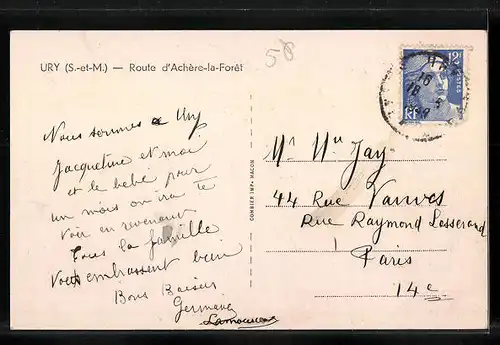 58
URY (S.-et-M.) — Route d'Achère-la-Forêt
12F
POSTES
RF
Nous sommes a Ury
Jacqueline et moi
et le bébé pour
un mois on ira te
voir en revenant
tous la famille
Vous embrassent bien
Bons Baisers
Germaine
COMBIER IMP. MACON
Mr Mme Jay
44 Rue Vanves
Rue Raymond Losserand
Paris
14e